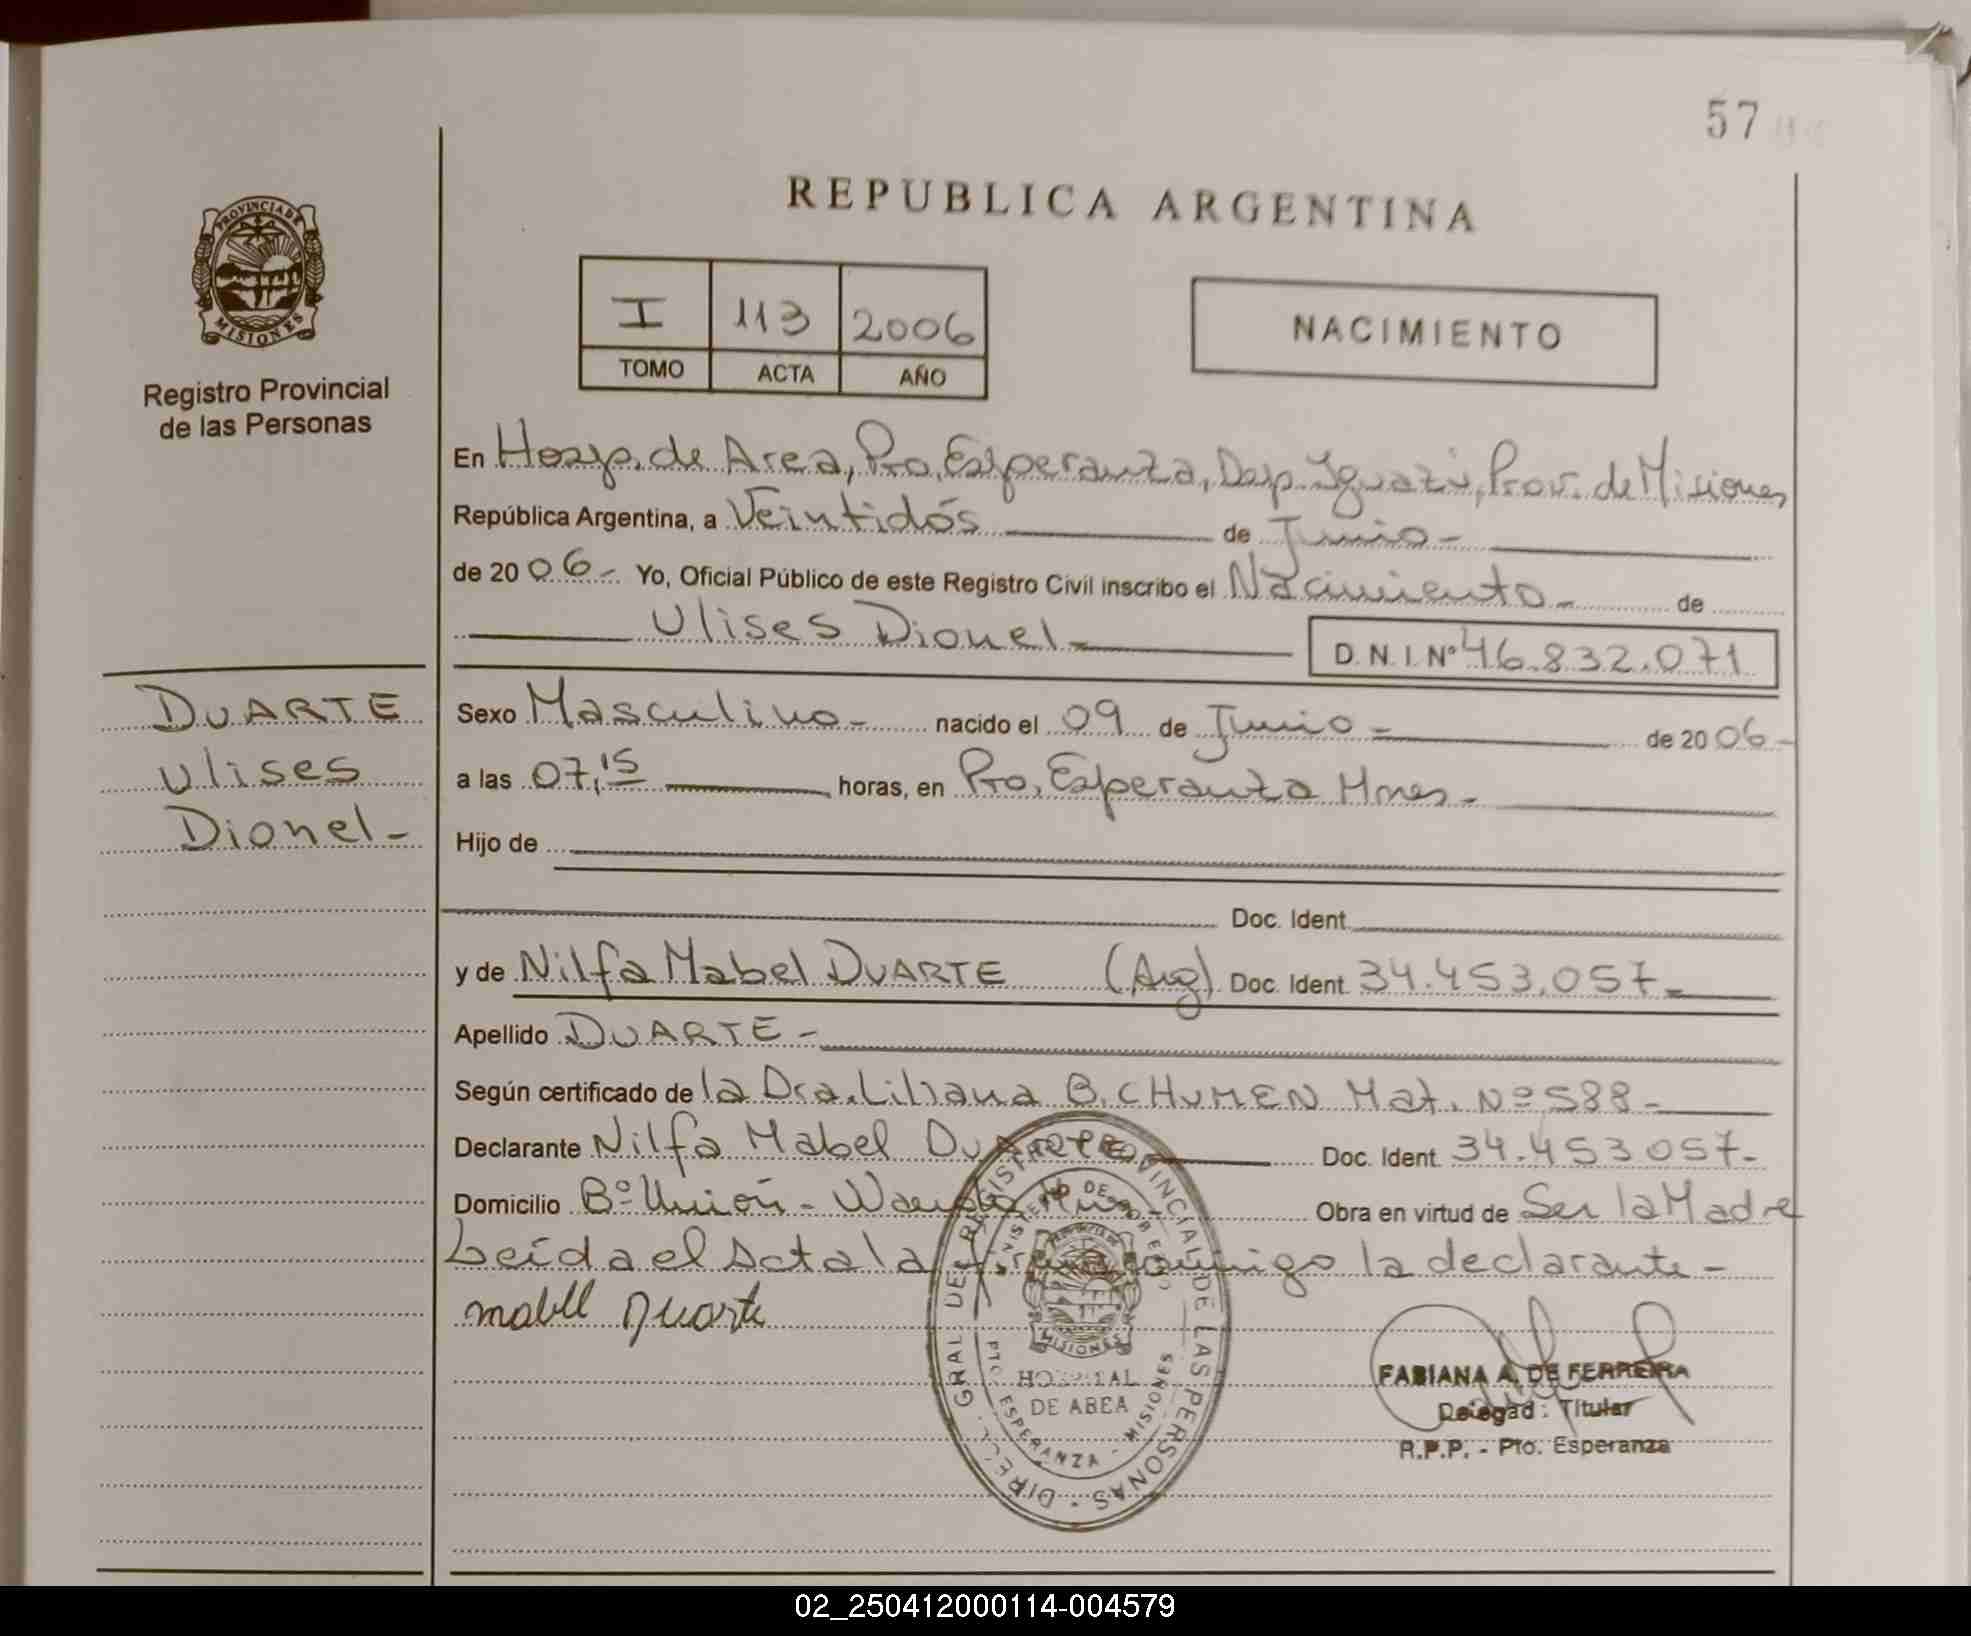 57
REPUBLICA ARGENTINA
PROVINCIA DE
MISIONES
Registro Provincial
de las Personas
I 113 2006
TOMO ACTA AÑO
NACIMIENTO
En Hosp. de Area, Pto. Esperanza, Dep. Iguazú, Prov. de Misiones
República Argentina, a Veintidós de Junio -
de 20 06 - Yo, Oficial Público de este Registro Civil inscribo el Nacimiento - de
Ulises Dionel - D.N.I. Nº 46.832.071
DUARTE
Ulises
Dionel -
Sexo Masculino - nacido el 09 de Junio - de 20 06 -
a las 07,15 horas, en Pto. Esperanza Mnes -
Hijo de
Doc. Ident.
y de Nilfa Mabel DUARTE (Arg) Doc. Ident. 34.453.057 -
Apellido DUARTE -
Según certificado de la Dra. Liliana B. CHUMEN Mat. Nº 588 -
Declarante Nilfa Mabel DUARTE Doc. Ident. 34.453.057 -
Domicilio Bº Unión - Wanda Mnes - Obra en virtud de Ser la Madre
Leída el Acta la firma conmigo la declarante -
mabel Duarte
DIREC. GRAL DEL REGISTRO PROVINCIAL DE LAS PERSONAS -
MINISTERIO DE GOBIERNO
MISIONES
HOSPITAL
DE AREA
PTO. ESPERANZA - MISIONES
FABIANA A. DE FERREIRA
Delegada Titular
R.P.P. - Pto. Esperanza
02_250412000114-004579